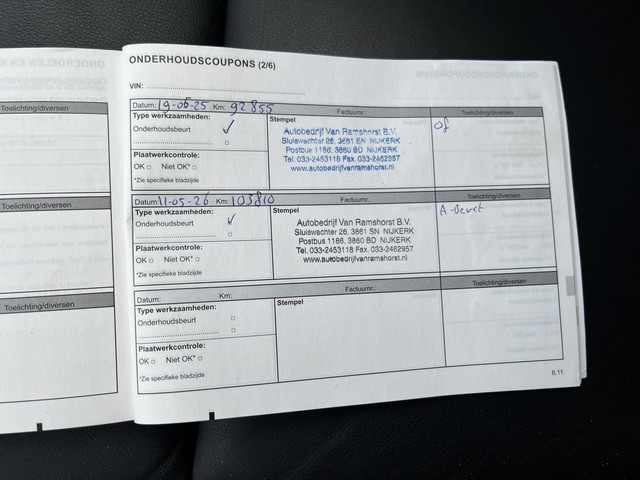 ONDERHOUDSCOUPONS (2/6)
VIN:
Toelichting/diversen
Datum: 19-06-25 Km: 92855 Factuurnr.: Toelichting/diversen
Type werkzaamheden: Stempel
Onderhoudsbeurt ✓
Autobedrijf Van Ramshorst B.V.
Sluiswachter 26, 3861 SN NIJKERK
Postbus 1186, 3860 BD NIJKERK
Tel. 033-2453118 Fax. 033-2462957
www.autobedrijfvanramshorst.nl
Of
Plaatwerkcontrole:
OK □ Niet OK* □
*Zie specifieke bladzijde
Toelichting/diversen
Datum: 11-05-26 Km: 103810 Factuurnr.: Toelichting/diversen
Type werkzaamheden: Stempel
Onderhoudsbeurt ✓
Autobedrijf Van Ramshorst B.V.
Sluiswachter 26, 3861 SN NIJKERK
Postbus 1186, 3860 BD NIJKERK
Tel. 033-2453118 Fax. 033-2462957
www.autobedrijfvanramshorst.nl
A-beurt
Plaatwerkcontrole:
OK □ Niet OK* □
*Zie specifieke bladzijde
Toelichting/diversen
Datum: Km: Factuurnr.: Toelichting/diversen
Type werkzaamheden: Stempel
Onderhoudsbeurt □
Plaatwerkcontrole:
OK □ Niet OK* □
*Zie specifieke bladzijde
6.11